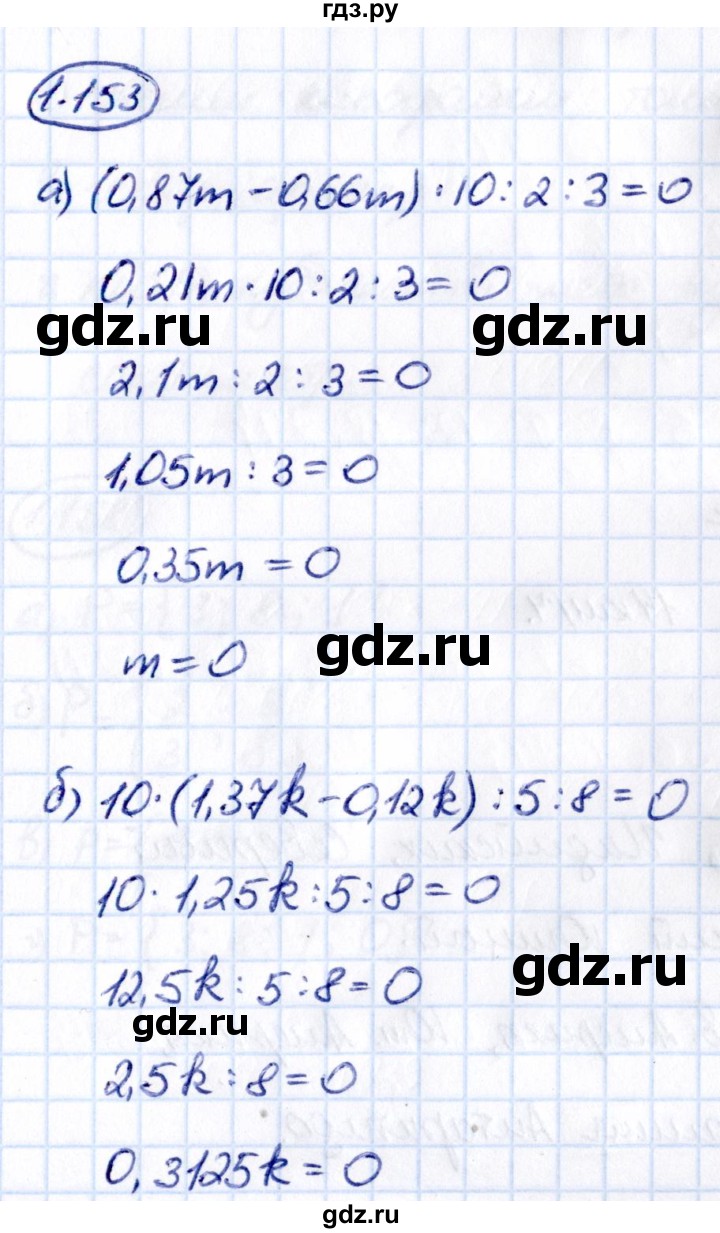 гдз.ру
1.153
а) (0,87m - 0,66m) · 10 : 2 : 3 = 0
0,21m · 10 : 2 : 3 = 0
gdz.ru gdz.ru
2,1m : 2 : 3 = 0
1,05m : 3 = 0
0,35m = 0
gdz.ru
m = 0
б) 10 · (1,37k - 0,12k) : 5 : 8 = 0
10 · 1,25k : 5 : 8 = 0
gdz.ru
12,5k : 5 : 8 = 0
gdz.ru
2,5k : 8 = 0
0,3125k = 0
gdz.ru